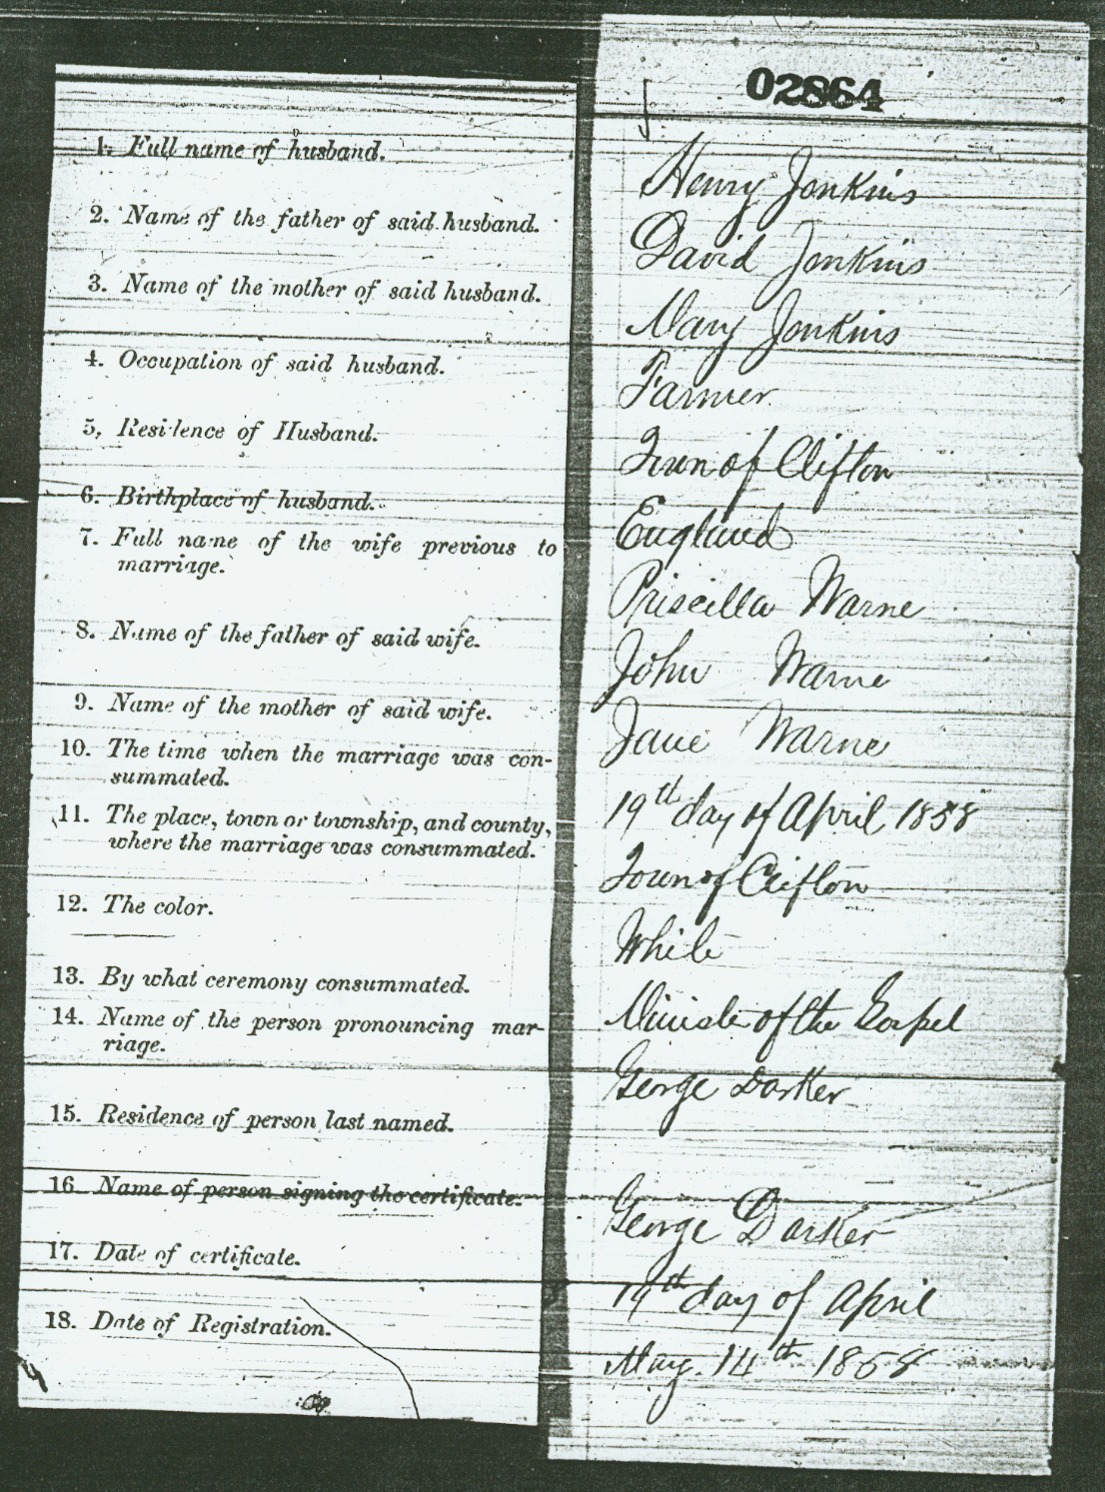 02864
1. Full name of husband.
Henry Jenkins
2. Name of the father of said husband.
David Jenkins
3. Name of the mother of said husband.
Mary Jenkins
4. Occupation of said husband.
Farmer
5. Residence of Husband.
Town of Clifton
6. Birthplace of husband.
England
7. Full name of the wife previous to
marriage.
Priscilla Warne
8. Name of the father of said wife.
John Warne
9. Name of the mother of said wife.
Jane Warne
10. The time when the marriage was con-
summated.
19th day of April 1858
11. The place, town or township, and county,
where the marriage was consummated.
Town of Clifton
12. The color.
White
13. By what ceremony consummated.
Minister of the Gospel
14. Name of the person pronouncing mar-
riage.
George Darker
15. Residence of person last named.
16. Name of person signing the certificate.
George Darker
17. Date of certificate.
19th day of April
18. Date of Registration.
May. 14th 1858